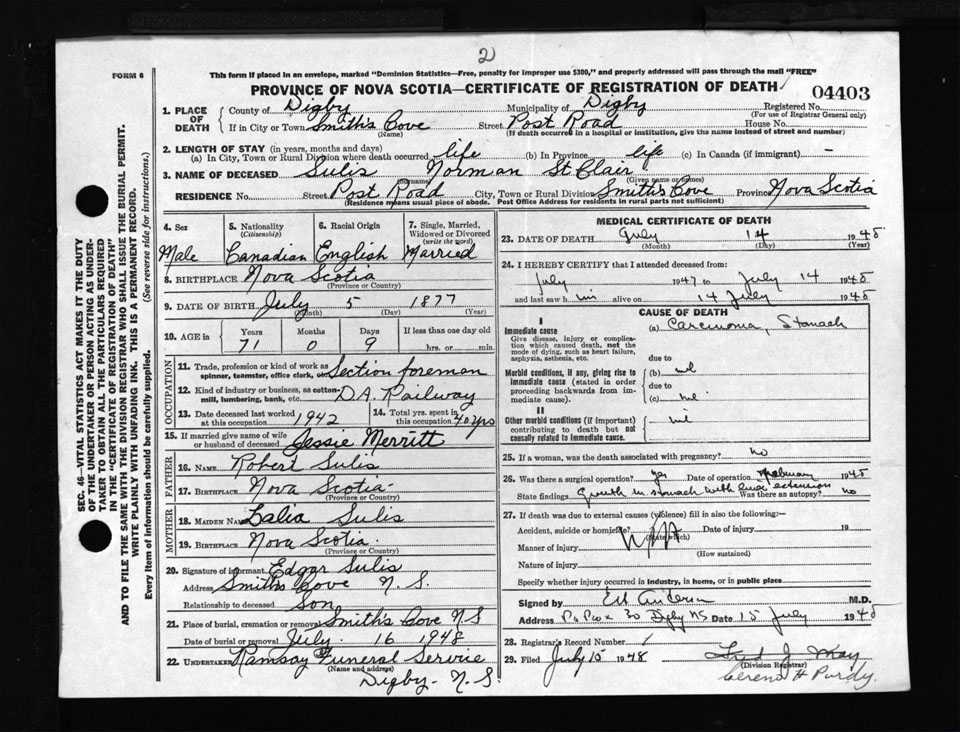 2
FORM 6
This form if placed in an envelope, marked "Dominion Statistics—Free, penalty for improper use $300," and properly addressed will pass through the mail "FREE"
PROVINCE OF NOVA SCOTIA—CERTIFICATE OF REGISTRATION OF DEATH
04403
1. PLACE OF DEATH
County of Digby Municipality of Digby Registered No.
(For use of Registrar General only)
If in City or Town Smith's Cove Street Post Road House No.
(Name) (If death occurred in a hospital or institution, give the name instead of street and number)
2. LENGTH OF STAY (in years, months and days)
(a) In City, Town or Rural Division where death occurred life (b) In Province life (c) In Canada (if immigrant) —
3. NAME OF DECEASED Sulis Norman St Clair
(Given name or names)
RESIDENCE No. Street Post Road City, Town or Rural Division Smith's Cove Province Nova Scotia
(Residence means usual place of abode. Post Office Address for residents in rural parts not sufficient)
4. Sex 5. Nationality 6. Racial Origin 7. Single, Married, Widowed or Divorced
(Citizenship) (write the word)
Male Canadian English Married
8. BIRTHPLACE Nova Scotia
(Province or Country)
9. DATE OF BIRTH July 5 1877
(Month) (Day) (Year)
10. AGE in Years Months Days If less than one day old
71 0 9 hrs. or min.
OCCUPATION
11. Trade, profession or kind of work as spinner, teamster, office clerk, etc. Section foreman
12. Kind of industry or business, as cotton-mill, lumbering, bank, etc. D.A. Railway
13. Date deceased last worked at this occupation 1942 14. Total yrs. spent in this occupation 40 yrs
15. If married give name of wife or husband of deceased Jessie Merritt
FATHER
16. NAME Robert Sulis
17. BIRTHPLACE Nova Scotia
(Province or Country)
MOTHER
18. MAIDEN NAME Sulis
19. BIRTHPLACE Nova Scotia
(Province or Country)
20. Signature of informant Edgar Sulis
Address Smiths Cove N.S.
Relationship to deceased Son
21. Place of burial, cremation or removal Smith's Cove N S
Date of burial or removal July 16 1948
22. UNDERTAKER Ramsay Funeral Service
(Name and address)
Digby - N.S.
MEDICAL CERTIFICATE OF DEATH
23. DATE OF DEATH July 14 1948
(Month) (Day) (Year)
24. I HEREBY CERTIFY that I attended deceased from:
July 1947 to July 14 1948
and last saw h im alive on 14 July 1948
CAUSE OF DEATH
I
Immediate cause (a) Carcinoma, Stomach
Give disease, injury or complication which caused death, not the mode of dying, such as heart failure, asphyxia, asthenia, etc.
due to
Morbid conditions, if any, giving rise to immediate cause (stated in order proceeding backwards from immediate cause).
(b) nil
due to
(c) nil
II
Other morbid conditions (if important) contributing to death but not causally related to immediate cause.
nil
25. If a woman, was the death associated with pregnancy? no
26. Was there a surgical operation? yes Date of operation February 1948
State findings Growth in stomach with liver extension Was there an autopsy? no
27. If death was due to external causes (violence) fill in also the following:—
Accident, suicide or homicide? Date of injury 19
(State which)
Manner of injury
(How sustained)
Nature of injury
Specify whether injury occurred in industry, in home, or in public place
Signed by M.D.
Address Po Box 30 Digby NS Date 15 July 1948
28. Registrar's Record Number 1
29. Filed July 15 1948
(Division Registrar)
H Purdy.
SEC. 46—VITAL STATISTICS ACT MAKES IT THE DUTY
OF THE UNDERTAKER OR PERSON ACTING AS UNDER-
TAKER TO OBTAIN ALL THE PARTICULARS REQUIRED
IN THE "CERTIFICATE OF REGISTRATION OF DEATH"
AND TO FILE THE SAME WITH THE DIVISION REGISTRAR WHO SHALL ISSUE THE BURIAL PERMIT.
WRITE PLAINLY WITH UNFADING INK. THIS IS A PERMANENT RECORD.
Every item of information should be carefully supplied. (See reverse side for instructions.)